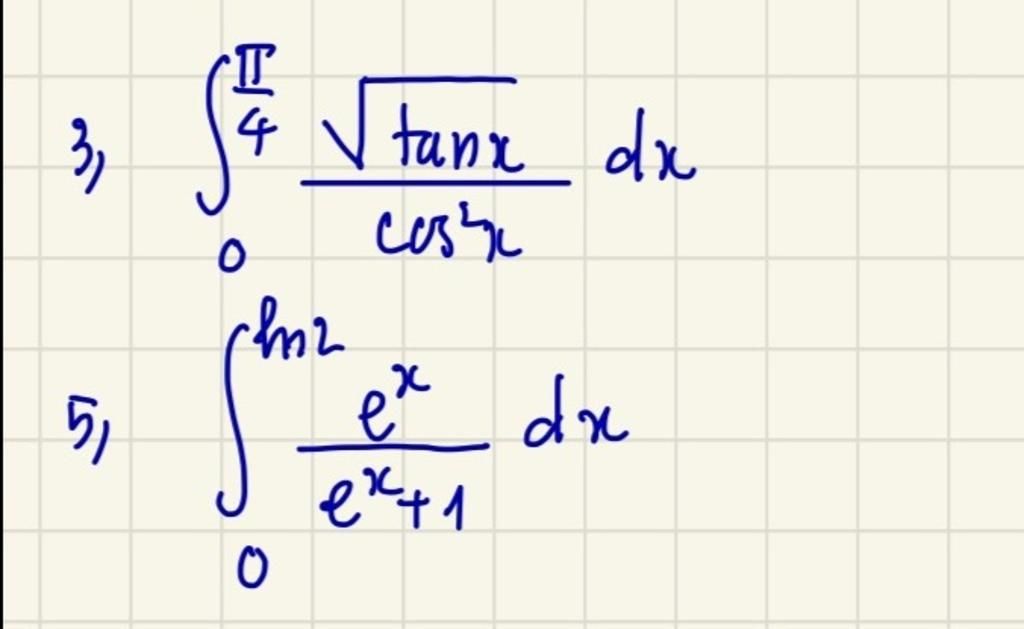 3, ∫₀^{π/4} √(tanx)/cos²x dx
5, ∫₀^{ln2} eˣ/(eˣ+1) dx